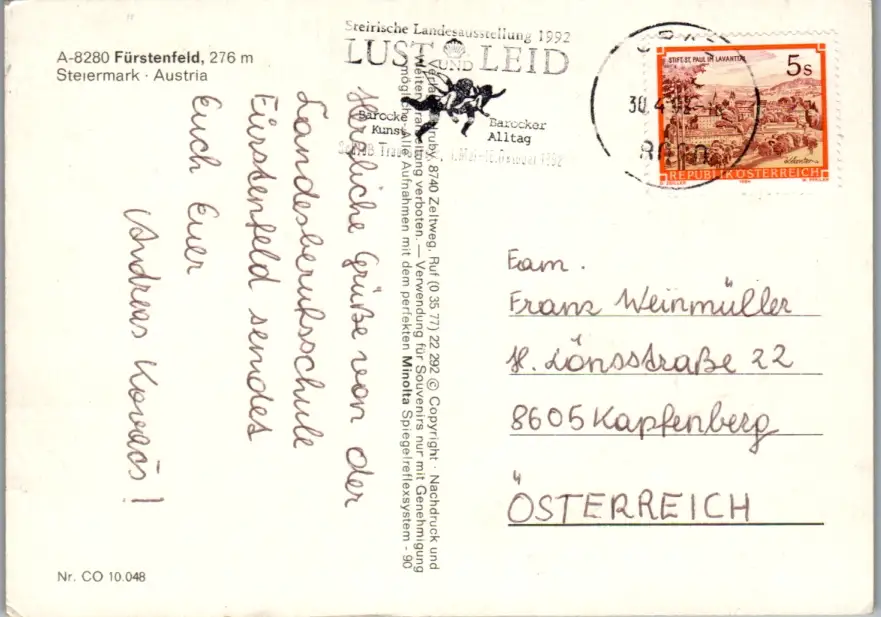 A-8280 Fürstenfeld, 276 m
Steiermark · Austria
Steirische Landesausstellung 1992
LUST UND LEID
Barocke
Kunst
Barocker
Alltag
30.4.
STIFT ST. PAUL IM LAVANTTAL
5s
REPUBLIK ÖSTERREICH
Herzliche Grüße von der
Landesberufsschule
Fürstenfeld sendet
Euch Euer
Andreas Kovacs!
8740 Zeltweg, Ruf (0 35 77) 22 292 © Copyright · Nachdruck und
verboten. — Verwendung für Souvenirs nur mit Genehmigung
Alle Aufnahmen mit dem perfekten Minolta Spiegelreflexsystem - 90
Fam.
Franz Weinmüller
H. Lönsstraße 22
8605 Kapfenberg
ÖSTERREICH
Nr. CO 10.048